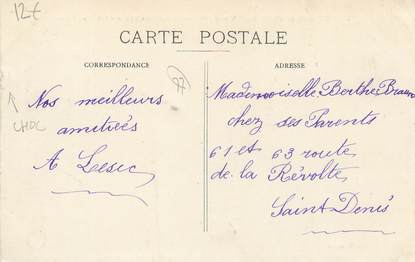 12€
CARTE POSTALE
CORRESPONDANCE
ADRESSE
77
Nos meilleurs
amitiés
A Lesec
CHOC
Mademoiselle Berthe
chez ses Parents
61 et 63 route
de la Révolte
Saint Denis